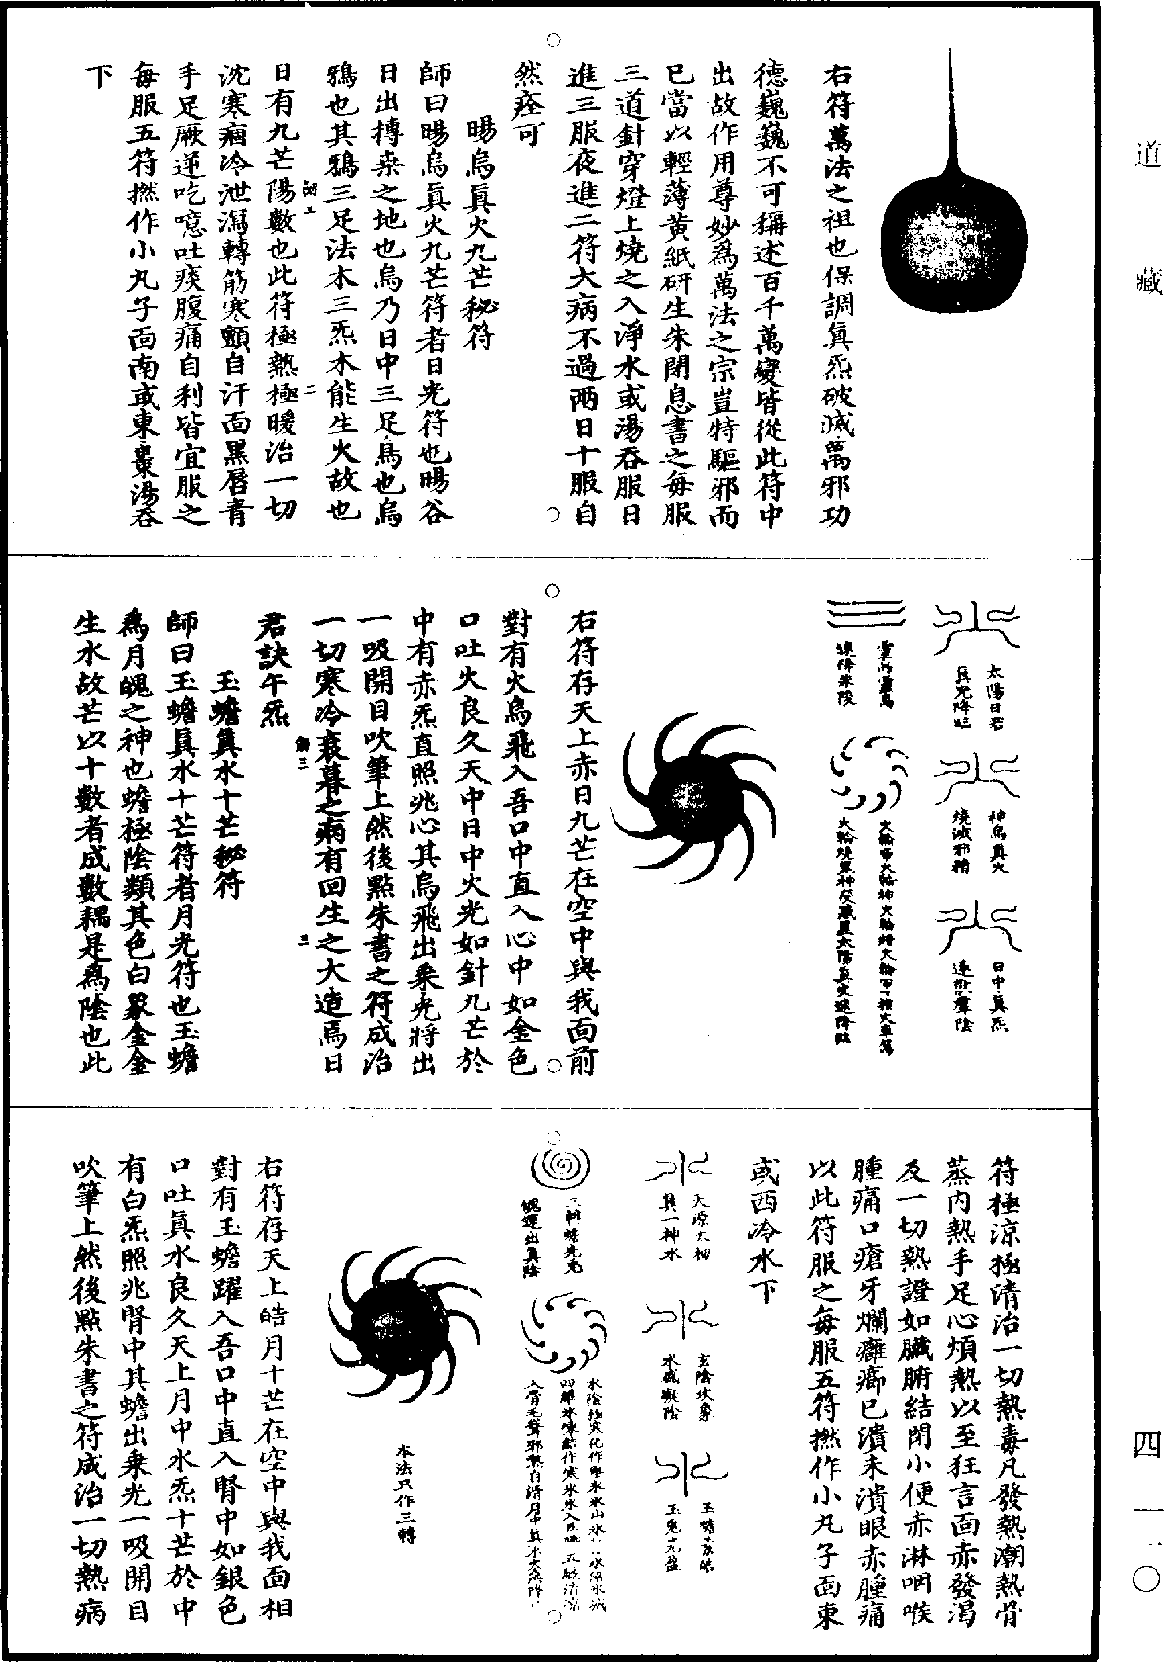 道藏
四一一〇
右符萬法之祖也保調眞炁破滅萬邪功
德巍巍不可稱述百千萬變皆從此符中
出故作用尊妙爲萬法之宗豈特驅邪而
已當以輕薄黄紙研生朱閉息書之每服
三道針穿燈上燒之入淨水或湯吞服日
進三服夜進二符大病不過兩日十服自
然痊可
暘烏眞火九芒秘符
師曰暘烏眞火九芒符者日光符也暘谷
日出搏桒之地也烏乃日中三足烏也烏
鴉也其鴉三足法木三炁木能生火故也
日有九芒陽數也此符極熱極暖治一切
沈寒痼冷泄瀉轉筋寒顫自汗面黑唇青
手足厥逆吃噫吐痰腹痛自利皆宜服之
每服五符撚作小丸子面南或東棗湯吞
下
太陽日君
眞光降臨
神烏眞火
燒滅邪精
日中眞炁
速散羣陰
右符存天上赤日九芒在空中與我面前
對有火烏飛入吾口中直入心中如金色
口吐火良久天中日中火光如針九芒於
中有赤炁直照兆心其烏飛出乗光將出
一吸開目吹筆上然後點朱書之符成治
一切寒冷衰暮之病有回生之大造焉日
君訣午炁
玉蟾眞水十芒秘符
師曰玉蟾眞水十芒符者月光符也玉蟾
爲月魄之神也蟾極陰類其色白象金金
生水故芒以十數者成數耦是爲陰也此
符極涼極清治一切熱毒凡發熱潮熱骨
蒸内熱手足心煩熱以至狂言面赤發渴
及一切熱證如臟腑結閉小便赤淋咽喉
腫痛口瘡牙爛癰癤已潰未潰眼赤腫痛
以此符服之每服五符撚作小丸子面東
或西冷水下
眞一神水
玄陰
本法只作三轉
右符存天上皓月十芒在空中與我面相
對有玉蟾躍入吾口中直入腎中如銀色
口吐眞水良久天上月中水炁十芒於中
有白炁照兆腎中其蟾出乗光一吸開目
吹筆上然後點朱書之符成治一切熱病